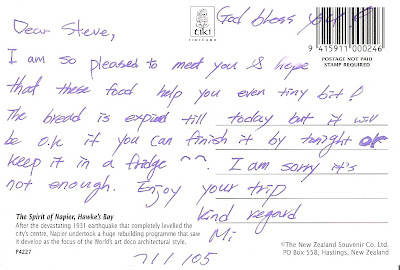 God bless you!
Dear Steve,
tiki
9 415911 000246
POSTAGE NOT PAID
STAMP REQUIRED
I am so pleased to meet you & hope
that these food help you even tiny bit!
The bread is expired till today but it will
be o.k if you can finish it by tonight or
keep it in a fridge ^^. I am sorry it's
not enough. Enjoy your trip
Kind regard
Mi
7/1/05
The Spirit of Napier, Hawke's Bay
After the devastating 1931 earthquake that completely levelled the
city's centre, Napier undertook a huge rebuilding programme that saw
it develop as the focus of the World's art deco architectural style.
P4227
©The New Zealand Souvenir Co Ltd.
PO Box 558, Hastings, New Zealand